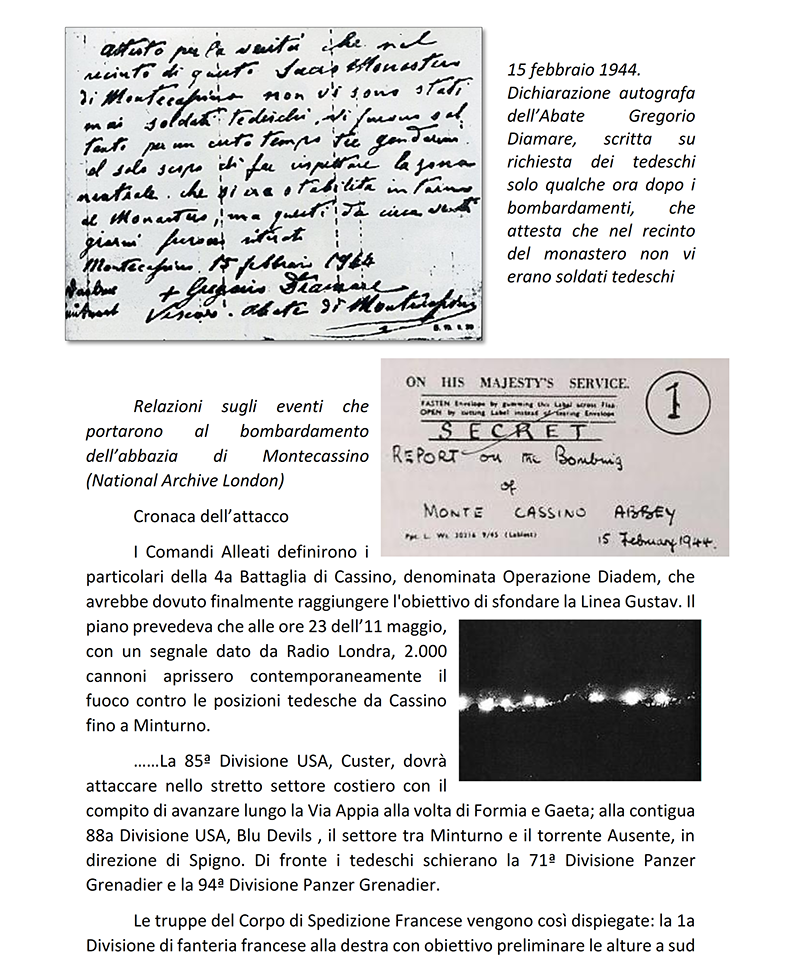 attesto per la verità che nel
recinto di questo Sacro Monastero
di Montecassino non vi sono stati
mai soldati tedeschi, vi furono sol
tanto per un certo tempo tre gendarmi
al solo scopo di far rispettare la zona
neutrale che si era stabilita intorno
al Monastero, ma questi da circa venti
giorni furono ritirati
Montecassino 15 febbraio 1944
+ Gregorio Diamare
Vescovo. abate di Montecassino
15 febbraio 1944.
Dichiarazione autografa
dell’Abate Gregorio
Diamare, scritta su
richiesta dei tedeschi
solo qualche ora dopo i
bombardamenti, che
attesta che nel recinto
del monastero non vi
erano soldati tedeschi
ON HIS MAJESTY'S SERVICE.
FASTEN Envelope by gumming this Label across Flap
OPEN by cutting Label instead of tearing Envelope
1
SECRET
REPORT on the Bombing
of
MONTE CASSINO ABBEY
15 February 1944.
Relazioni sugli eventi che
portarono al bombardamento
dell’abbazia di Montecassino
(National Archive London)
Cronaca dell’attacco
I Comandi Alleati definirono i
particolari della 4a Battaglia di Cassino, denominata Operazione Diadem, che
avrebbe dovuto finalmente raggiungere l'obiettivo di sfondare la Linea Gustav. Il
piano prevedeva che alle ore 23 dell’11 maggio,
con un segnale dato da Radio Londra, 2.000
cannoni aprissero contemporaneamente il
fuoco contro le posizioni tedesche da Cassino
fino a Minturno.
……La 85ª Divisione USA, Custer, dovrà
attaccare nello stretto settore costiero con il
compito di avanzare lungo la Via Appia alla volta di Formia e Gaeta; alla contigua
88a Divisione USA, Blu Devils , il settore tra Minturno e il torrente Ausente, in
direzione di Spigno. Di fronte i tedeschi schierano la 71ª Divisione Panzer
Grenadier e la 94ª Divisione Panzer Grenadier.
Le truppe del Corpo di Spedizione Francese vengono così dispiegate: la 1a
Divisione di fanteria francese alla destra con obiettivo preliminare le alture a sud